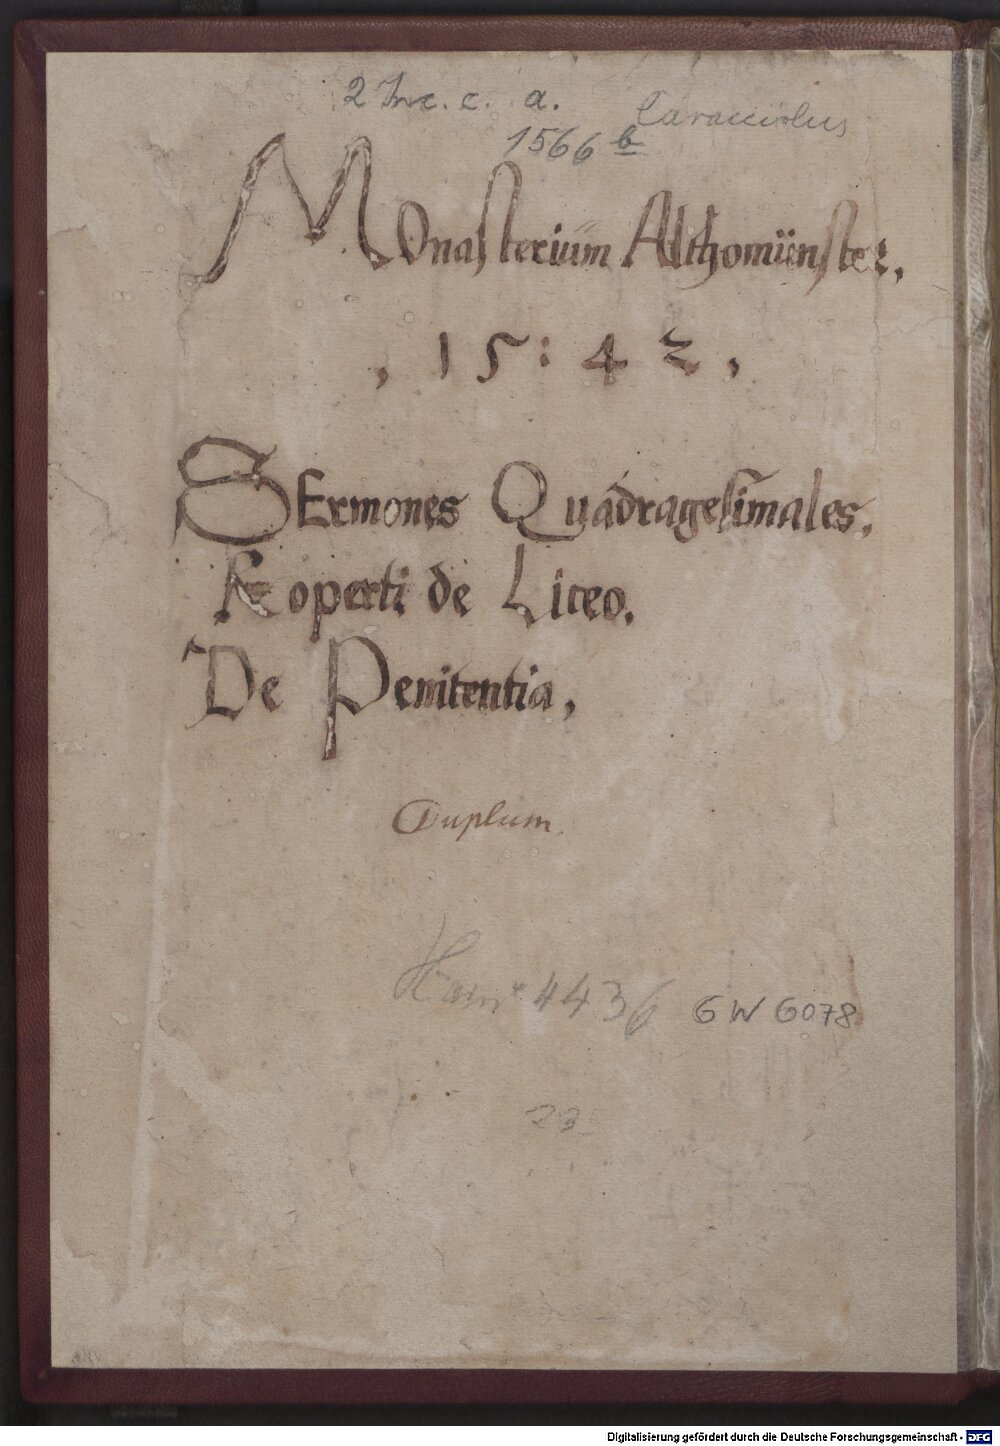 2 Inc. c. a. Caracciolus
1566 b
Monasterium Althomünster.
, 15:42,
SErmones Quadragesimales.
Roperti de Liceo.
De Penitentia,
Duplum.
Hain* 4436 GW 6078
Digitalisierung gefördert durch die Deutsche Forschungsgemeinschaft - DFG